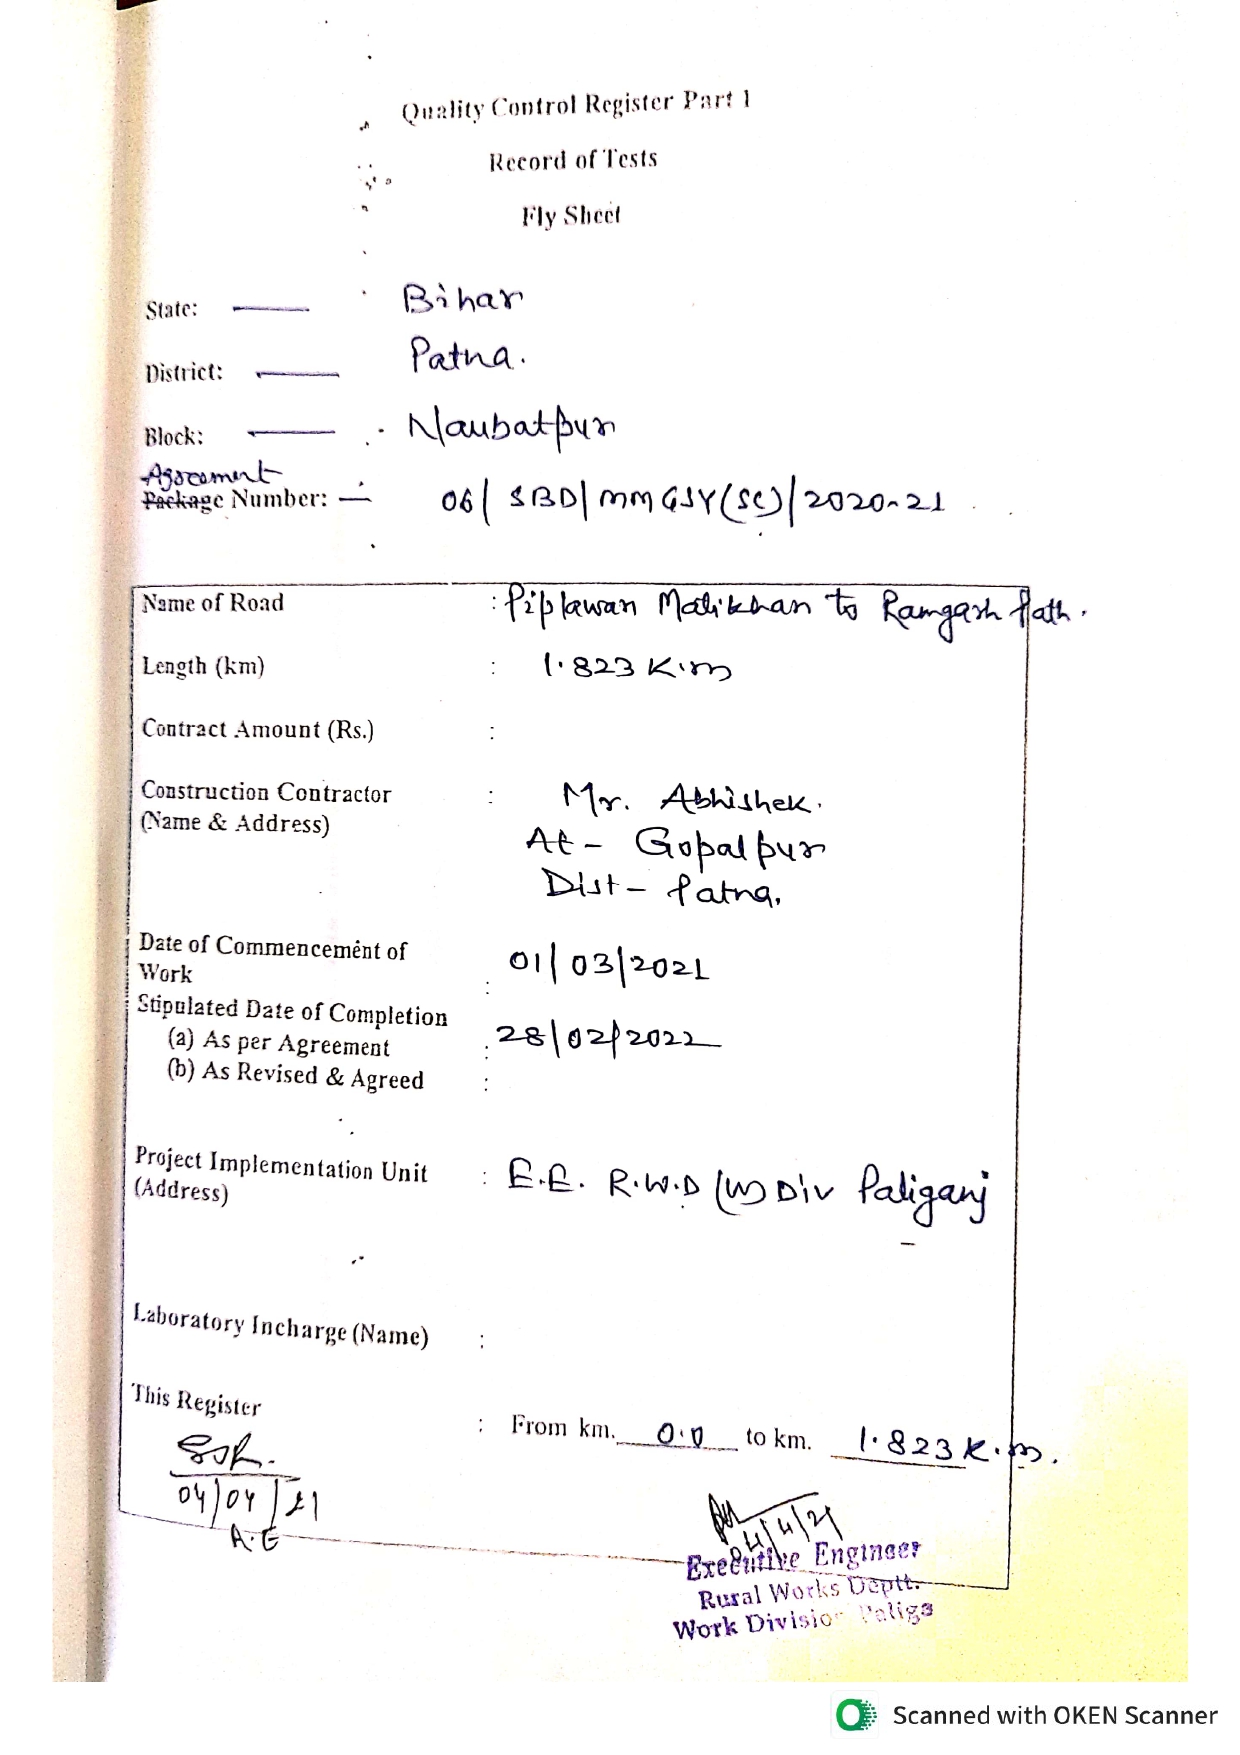 Quality Control Register Part 1
Record of Tests
Fly Sheet
State: Bihar
District: Patna.
Block: Naubatpur
Agreement
Package Number: 06/SBD/MMGSY(SC)/2020-21
Name of Road : Piplawan Malikhan to Ramgarh Path.
Length (km) : 1.823 K.m
Contract Amount (Rs.) :
Construction Contractor : Mr. Abhishek.
(Name & Address) At- Gopalpur
Dist- Patna.
Date of Commencement of
Work : 01/03/2021
Stipulated Date of Completion
(a) As per Agreement : 28/02/2022
(b) As Revised & Agreed :
Project Implementation Unit : E.E. R.W.D (W) Div Paliganj
(Address)
Laboratory Incharge (Name) :
This Register : From km. 0.0 to km. 1.823 K.m.
04/04/21
A.E
04/4/21
Executive Engineer
Rural Works Deptt.
Work Division Paliga
Scanned with OKEN Scanner